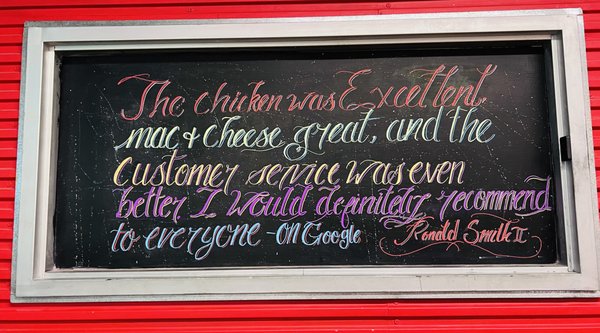 The chicken was Excellent,
mac & cheese great, and the
Customer service was even
better I would definitely recommend
to everyone - ON Google Ronald Smith II